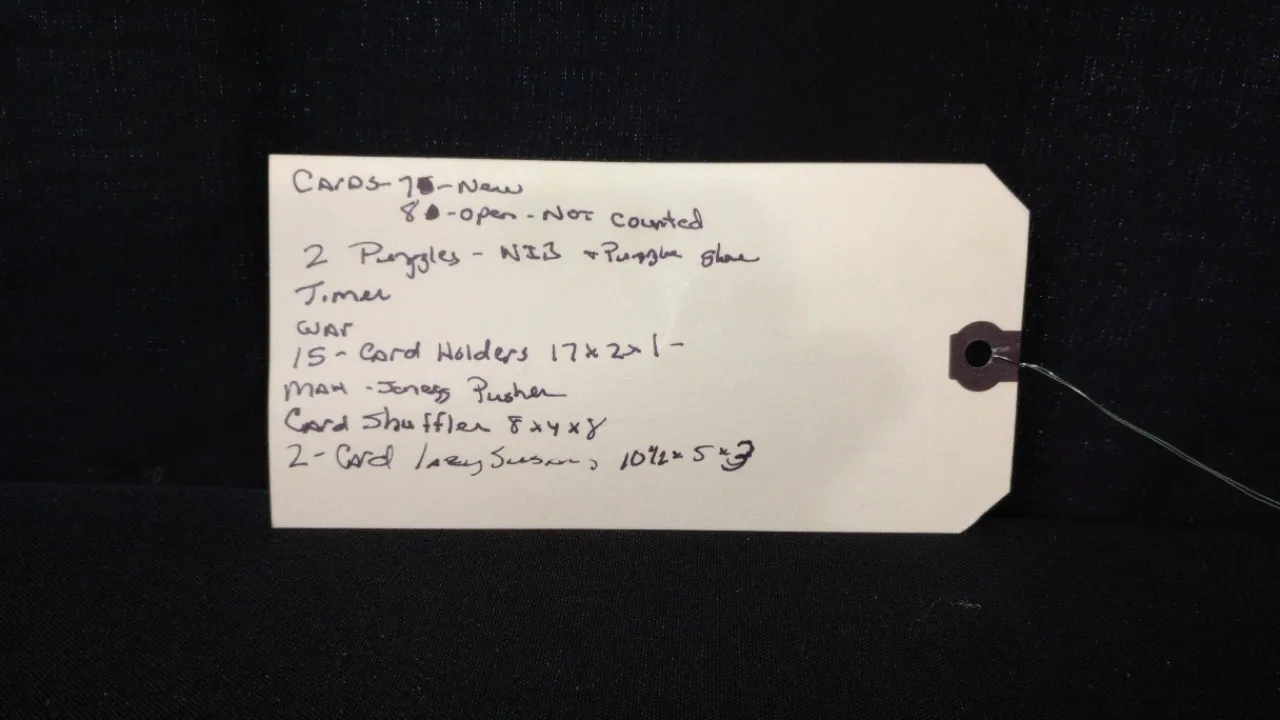 CARDS-7 -New
8 -open-NOT counted
2 Puzzles - NIB + Puzzle Glue
Timer
WAR
15- Card Holders 17x2x1-
MAH -Jongg Pusher
Card Shuffler 8x4x8
2-Card lazy Susans 10½x5x3